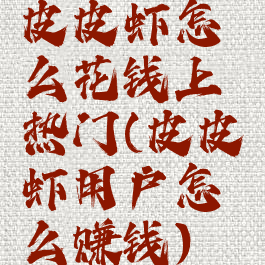 皮皮虾怎
么花钱上
热门(皮皮
虾用户怎
么赚钱)